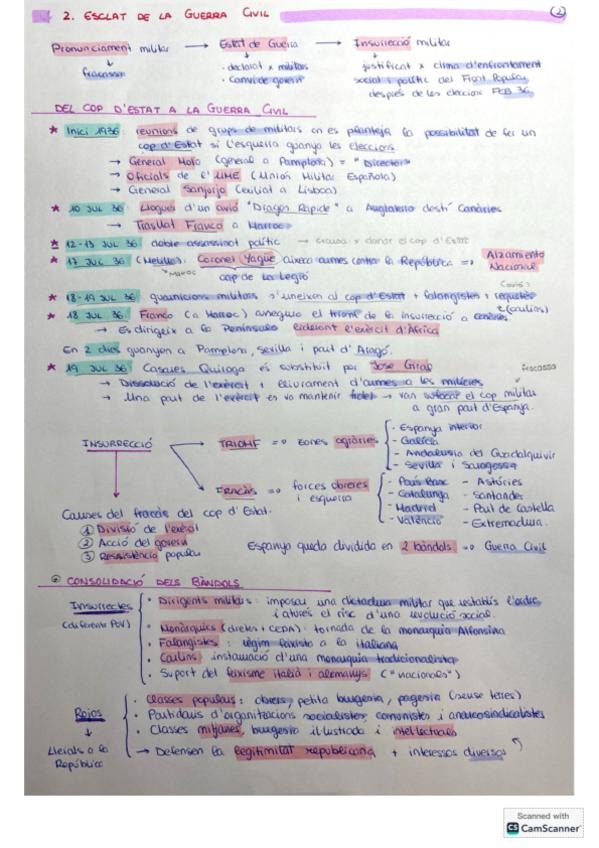 2. ESCLAT DE LA GUERRA CIVIL
2
Pronunciament militar → Estat de Guerra → Insurrecció militar
fracassa
· declarat x militars
· Canvi de govern
justificat x clima d'enfrontament
social i polític del Front Popular
després de les eleccions FEB 36.
DEL COP D'ESTAT A LA GUERRA CIVIL
* Inici 1936: reunions de grups de militars on es planteja la possibilitat de fer un
cop d'Estat si l'esquerra guanya les eleccions
→ General Mola (general a Pamplona) = "Director"
→ Oficials de l'UME (Unión Militar Española)
→ General Sanjurjo (exiliat a Lisboa)
* 10 JUL 36: Lloguer d'un avió "Dragon Rapide" a Anglaterra destí Canàries
→ Trasllat Franco a Marroc
* 12-13 JUL 36 doble assassinat polític → excusa x donar el cop d'Estat
* 17 JUL 36 (Melilla): Coronel Yagüe aixeca armes contra la República => Alzamiento
Nacional
Marroc
cap de la Legió
* 18-19 JUL 36 guarnicions militars s'uneixen al cop d'Estat + falangistes i requetés
(carlins)
* 18 JUL 36: Franco (a Marroc) assegura el triomf de la insurrecció a
→ Es dirigeix a la Península liderant l'exèrcit d'Àfrica
En 2 dies guanyen a Pamplona, Sevilla i part d'Aragó.
* 19 JUL 36 Casares Quiroga és substituït per José Giral
fracassa
→ Dissolució de l'exèrcit + lliurament d'armes a les milícies
→ Una part de l'exèrcit es va mantenir fidel → van sufocar el cop militar
a gran part d'Espanya.
INSURRECCIÓ
TRIOMF => zones agràries
- Espanya interior
- Galícia
- Andalusia del Guadalquivir
- Sevilla i Saragossa
FRACÀS => forces obreres
i esquerra
- País Basc - Astúries
- Catalunya - Santander
- Madrid - Part de Castella
- València - Extremadura.
Causes del fracàs del cop d'Estat.
1 Divisió de l'exèrcit
2 Acció del govern
3 Resistència popular
Espanya queda dividida en 2 bàndols => Guerra Civil
CONSOLIDACIÓ DELS BÀNDOLS
Insurrectes
(diferents POV)
· Dirigents militars: imposar una dictadura militar que restablís l'ordre
i aturés el risc d'una revolució social.
· Monàrquics (dretes + CEDA): tornada de la monarquia Alfonsina
· Falangistes: règim feixista a la italiana
· Carlins: instauració d'una monarquia tradicionalista
· Suport del feixisme italià i alemany ("nacionals")
Rojos
↓
Lleials a la
República
· Classes populars: obrers, petita burgesia, pagesia (sense terres)
· Partidaris d'organitzacions socialistes, comunistes i anarcosindicalistes
· Classes mitjanes, burgesia il·lustrada i intel·lectuals
→ Defensen la legitimitat republicana + interessos diversos
Scanned with
CS CamScanner